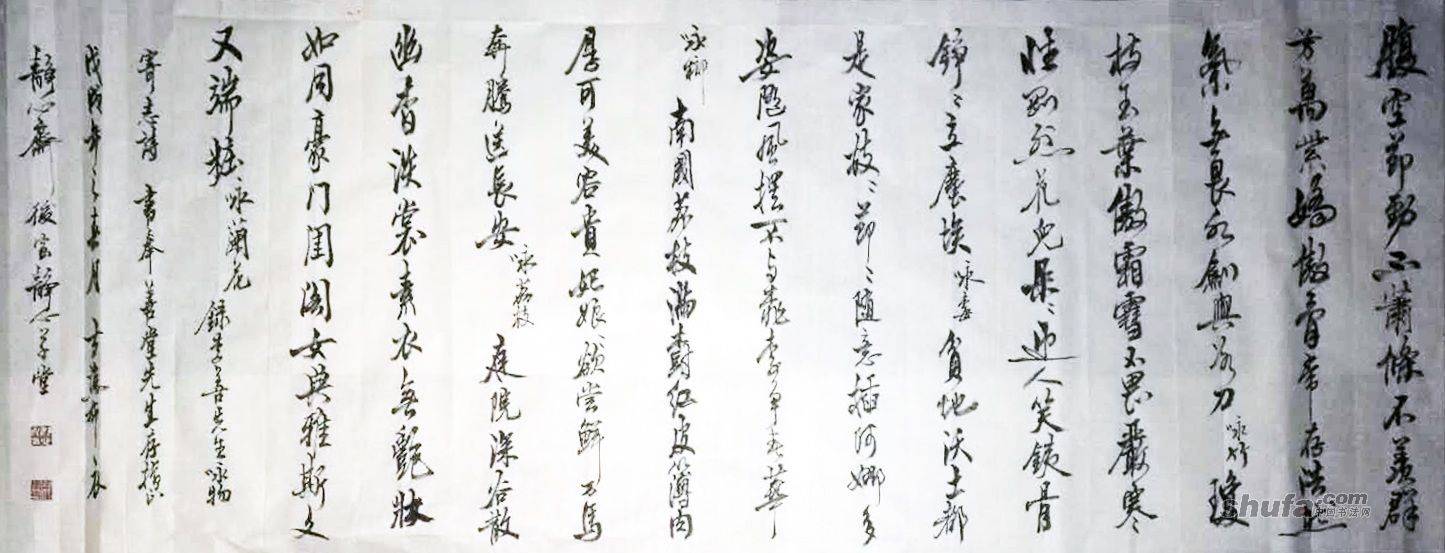 腹空節勁不蕭條不羨群
芳萬紫嬌傲骨常存浩然
氣無畏水劍與冰刀 咏竹 瓊
枝玉葉傲霜雪不畏嚴寒
性剛烈花兒朵〻迎人笑鐵骨
錚〻立塵埃 咏梅 貧地沃土都
是家枝〻節〻隨意插婀娜多
姿隨風擺不與桃李爭春華
咏柳 南國荔枝滿樹紅皮薄肉
厚可美容貴妃娘娘欲嘗鮮万馬
奔騰送長安 咏荔枝 庭院深谷散
幽香淡裳素衣無艷妝
如同豪门閨閣女典雅斯文
又端莊 咏蘭花 錄李善先生咏物
寄志詩 書奉 善堂先生存
戊戌年之春月
靜心齋 後宮靜心草堂
shufa.com
中国书法网